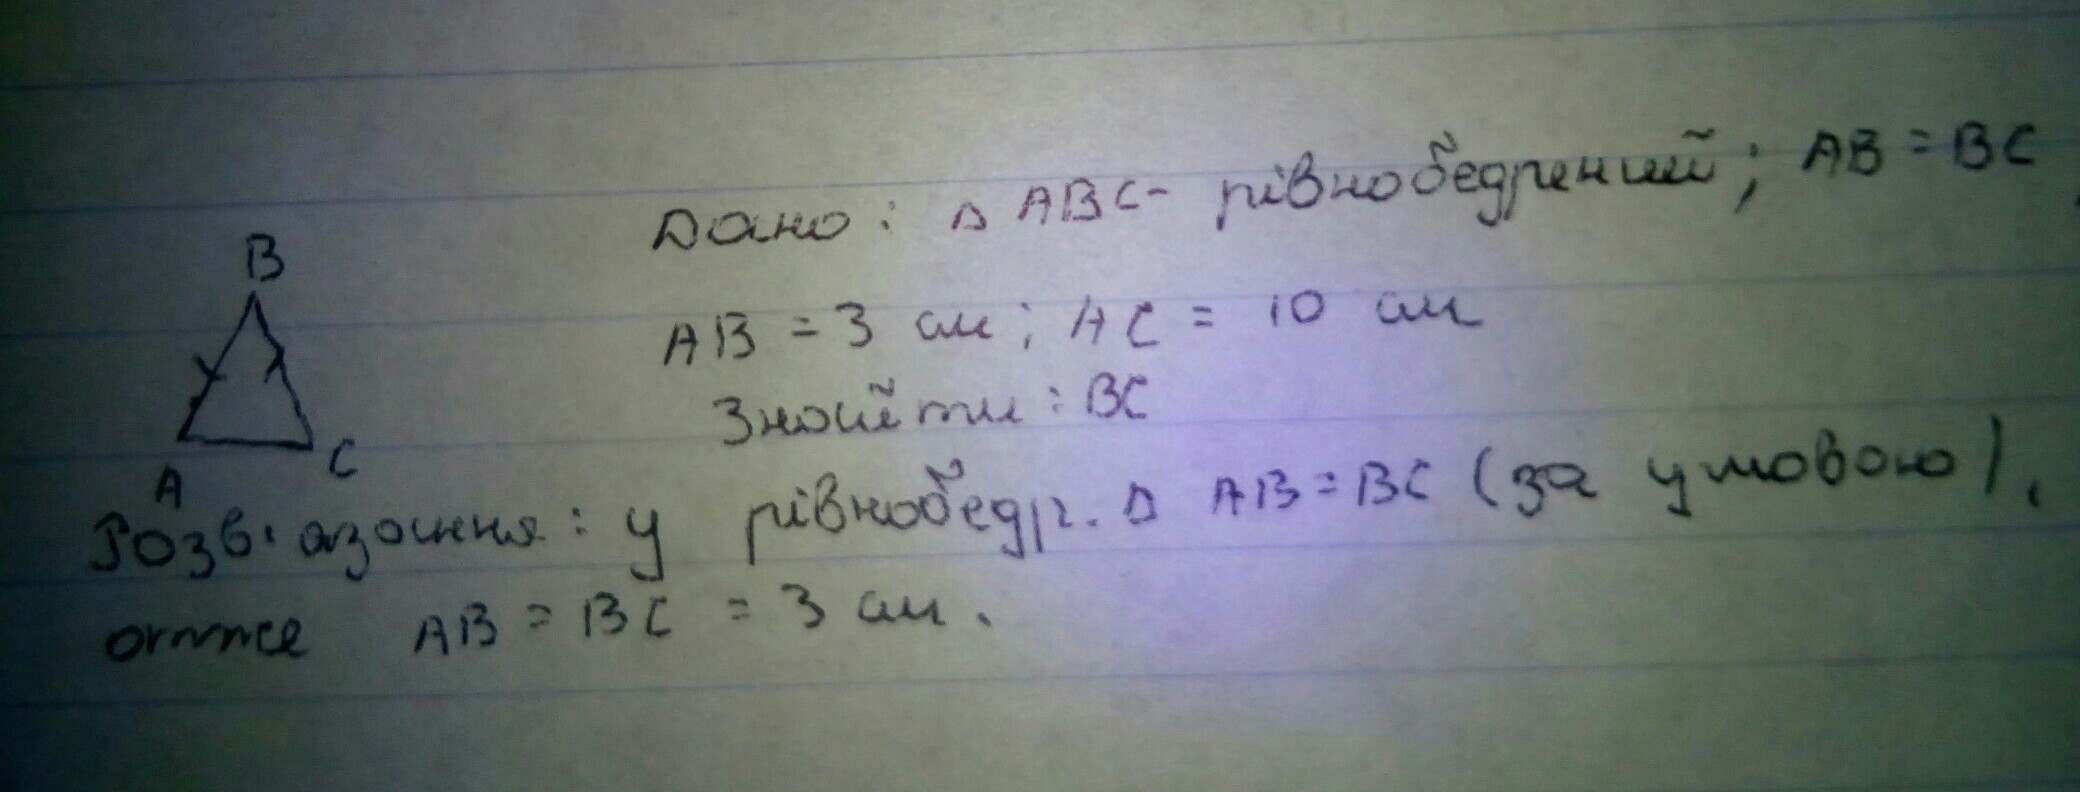 Дано: △ ABC - рівнобедрений; AB = BC
AB = 3 см; AC = 10 см
Знайти: BC
B
A
C
Розв'язання: у рівнобедр. △ AB = BC (за умовою),
отже AB = BC = 3 см.